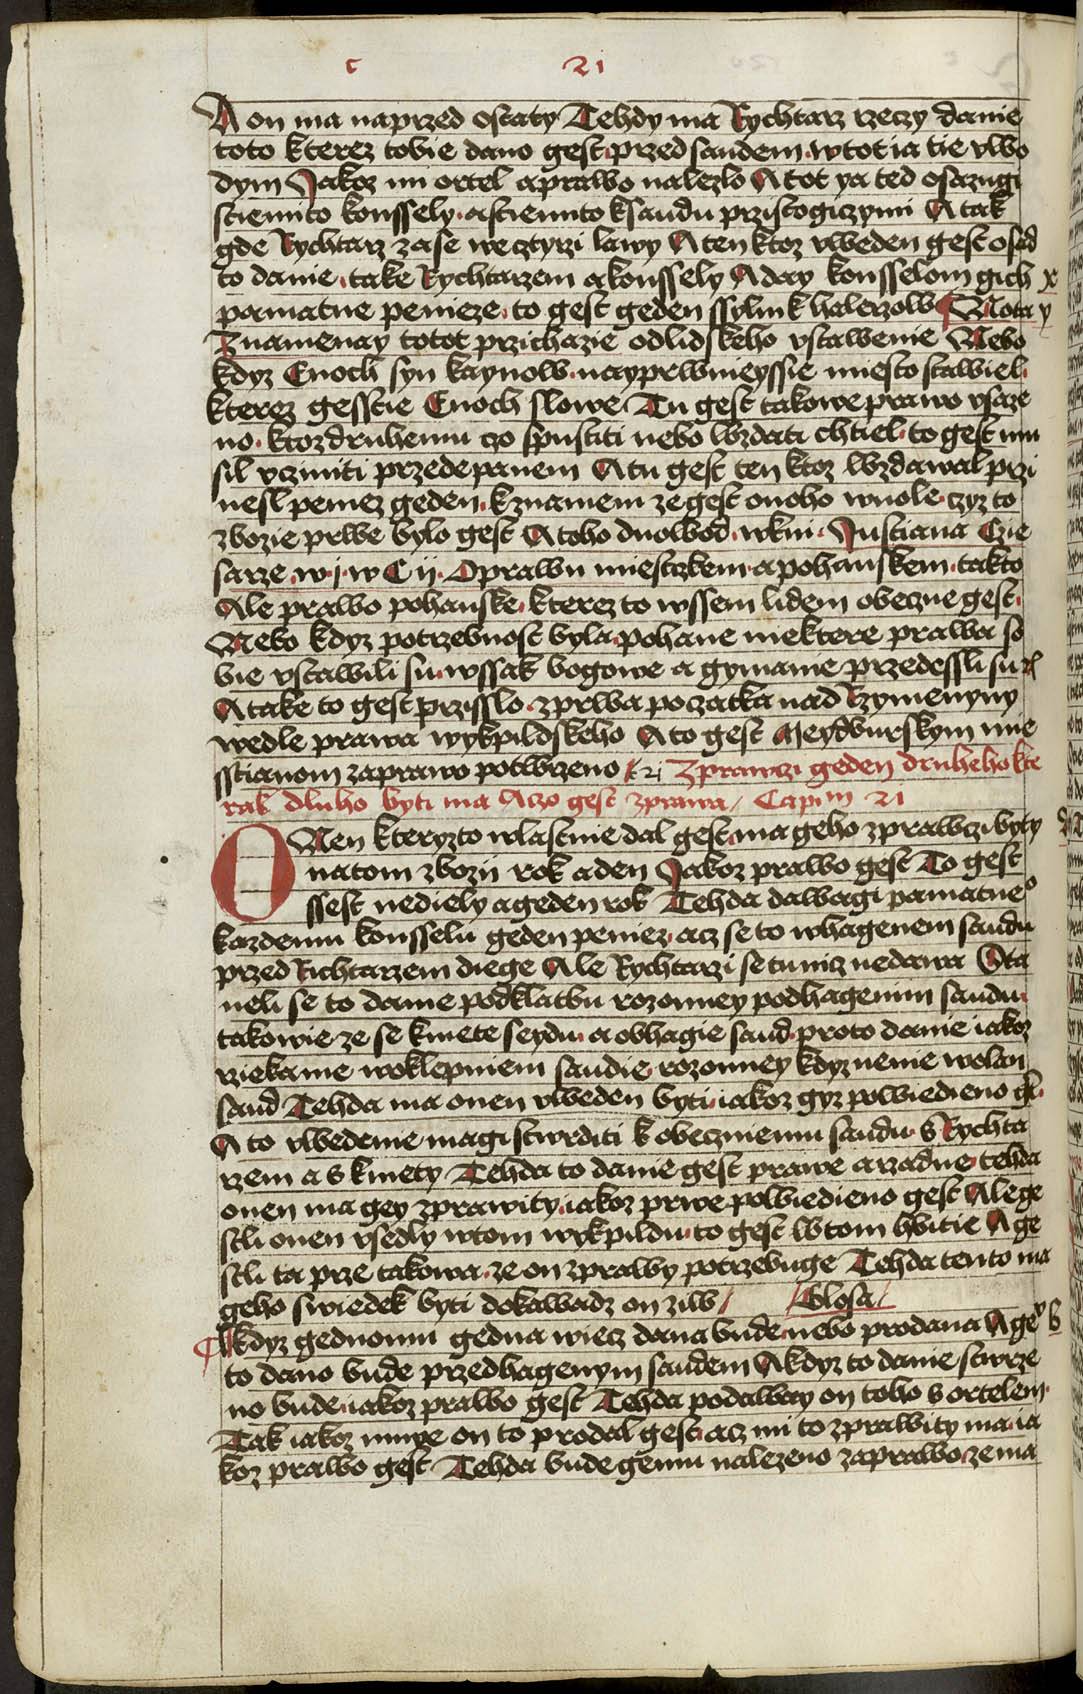 c 21
A on ma naprzed ostaty Tehdy ma Rychtarz rzeczy danie
toto kterez tobie dano gest przed saudem wtot ia tie vwo
dym Jakoz mi ortel aprawo nalezlo A tot ya ted osazugi
stiemito konssely astiemito ksaudu przistogiczymi A tak
gde Rychtarz zase wecztyrzi lawy A ten ktoz vweden gest osad
to danie take Rychtarzem akonssely A day konsselom gich x
pamatne penieze to gest geden ssylink halerzow Nota y
Znamenay totot przichazie odlidskeho vstawenie Nebo
kdyz Enoch syn kaynow nayprwnieyssie miesto stawiel
kterez gesstie Enoch slowe Tu gest takowe prawo vsaze
no ktoz druhemu czo spustiti nebo wzdati chtiel to gest mu
sil vcziniti przede panem A tu gest ten ktoz wzdawal przi
nesl peniez geden kznameni ze gest onoho wuole czyz to
zbozie prwe bylo gest A toho duowod wkni Justiana Czie
sarze w j w C ij O prawu miestskem apohanskem takto
Ale prawo pohanske kterez to wssem lidem obeczne gest
Nebo kdyz potrzebnost byla pohane niektere prawa so
bie vstawili su wssak bogowe a gymanie przedessli su
A take to gest przisslo zprwa poczatka nad Rzymenyny
wedle prawa wykpildskeho A to gest Meydburskym mie
sstianom zaprawo potwrzeno Zprawczi geden druheho kte
rak dluho byti ma A czo gest zprawa Capim 21
ONen kteryzto wlastnie dal gest ma geho zprawczi byty
natom zbozij rok aden Jakoz prawo gest To gest
ssest nediely ageden rok Tehda dawagi pamatneo
kazdemu konsselu geden peniez acz se to whagenem saudu
przed Richtarzem diege Ale Rychtarzi se tu nicz nedawa Sta
neli se to danie podklatbu rozomiey podhagenim saudu
takowie ze se kmete seydu a obhagie saud proto danie iakoz
rziekame woklepniem saudie rozomiey kdyz nenie wolan
saud Tehda ma onen vweden byti iakoz gyz powiedieno gest
A to vwedenie magi stwrditi k obecznemu saudu s Rychta
rzem a s kmety Tehda to danie gest prawe a rzadne tehda
onen ma gey zprawity iakoz prwe powiedieno gest A lege
stli onen vsedly wtom wykpildu to gest wtom hbitie A ge
stli ta prze takowa ze on zprawy potrzebuge Tehda tento ma
geho swiedek byti dokawadz on ziw Glosa
A kdyz gednomu gedna wiecz dana bude nebo prodana A gey b
to dano bude przedhagenym saudem A kdyz to danie stwrze
no bude iakoz prawo gest Tehda podaway on toho s ortelem
Tak iakoz mnye on to prodal gest acz mi to zprawity ma ia
koz prawo gest Tehda bude gemu nalezeno zaprawo ze ma